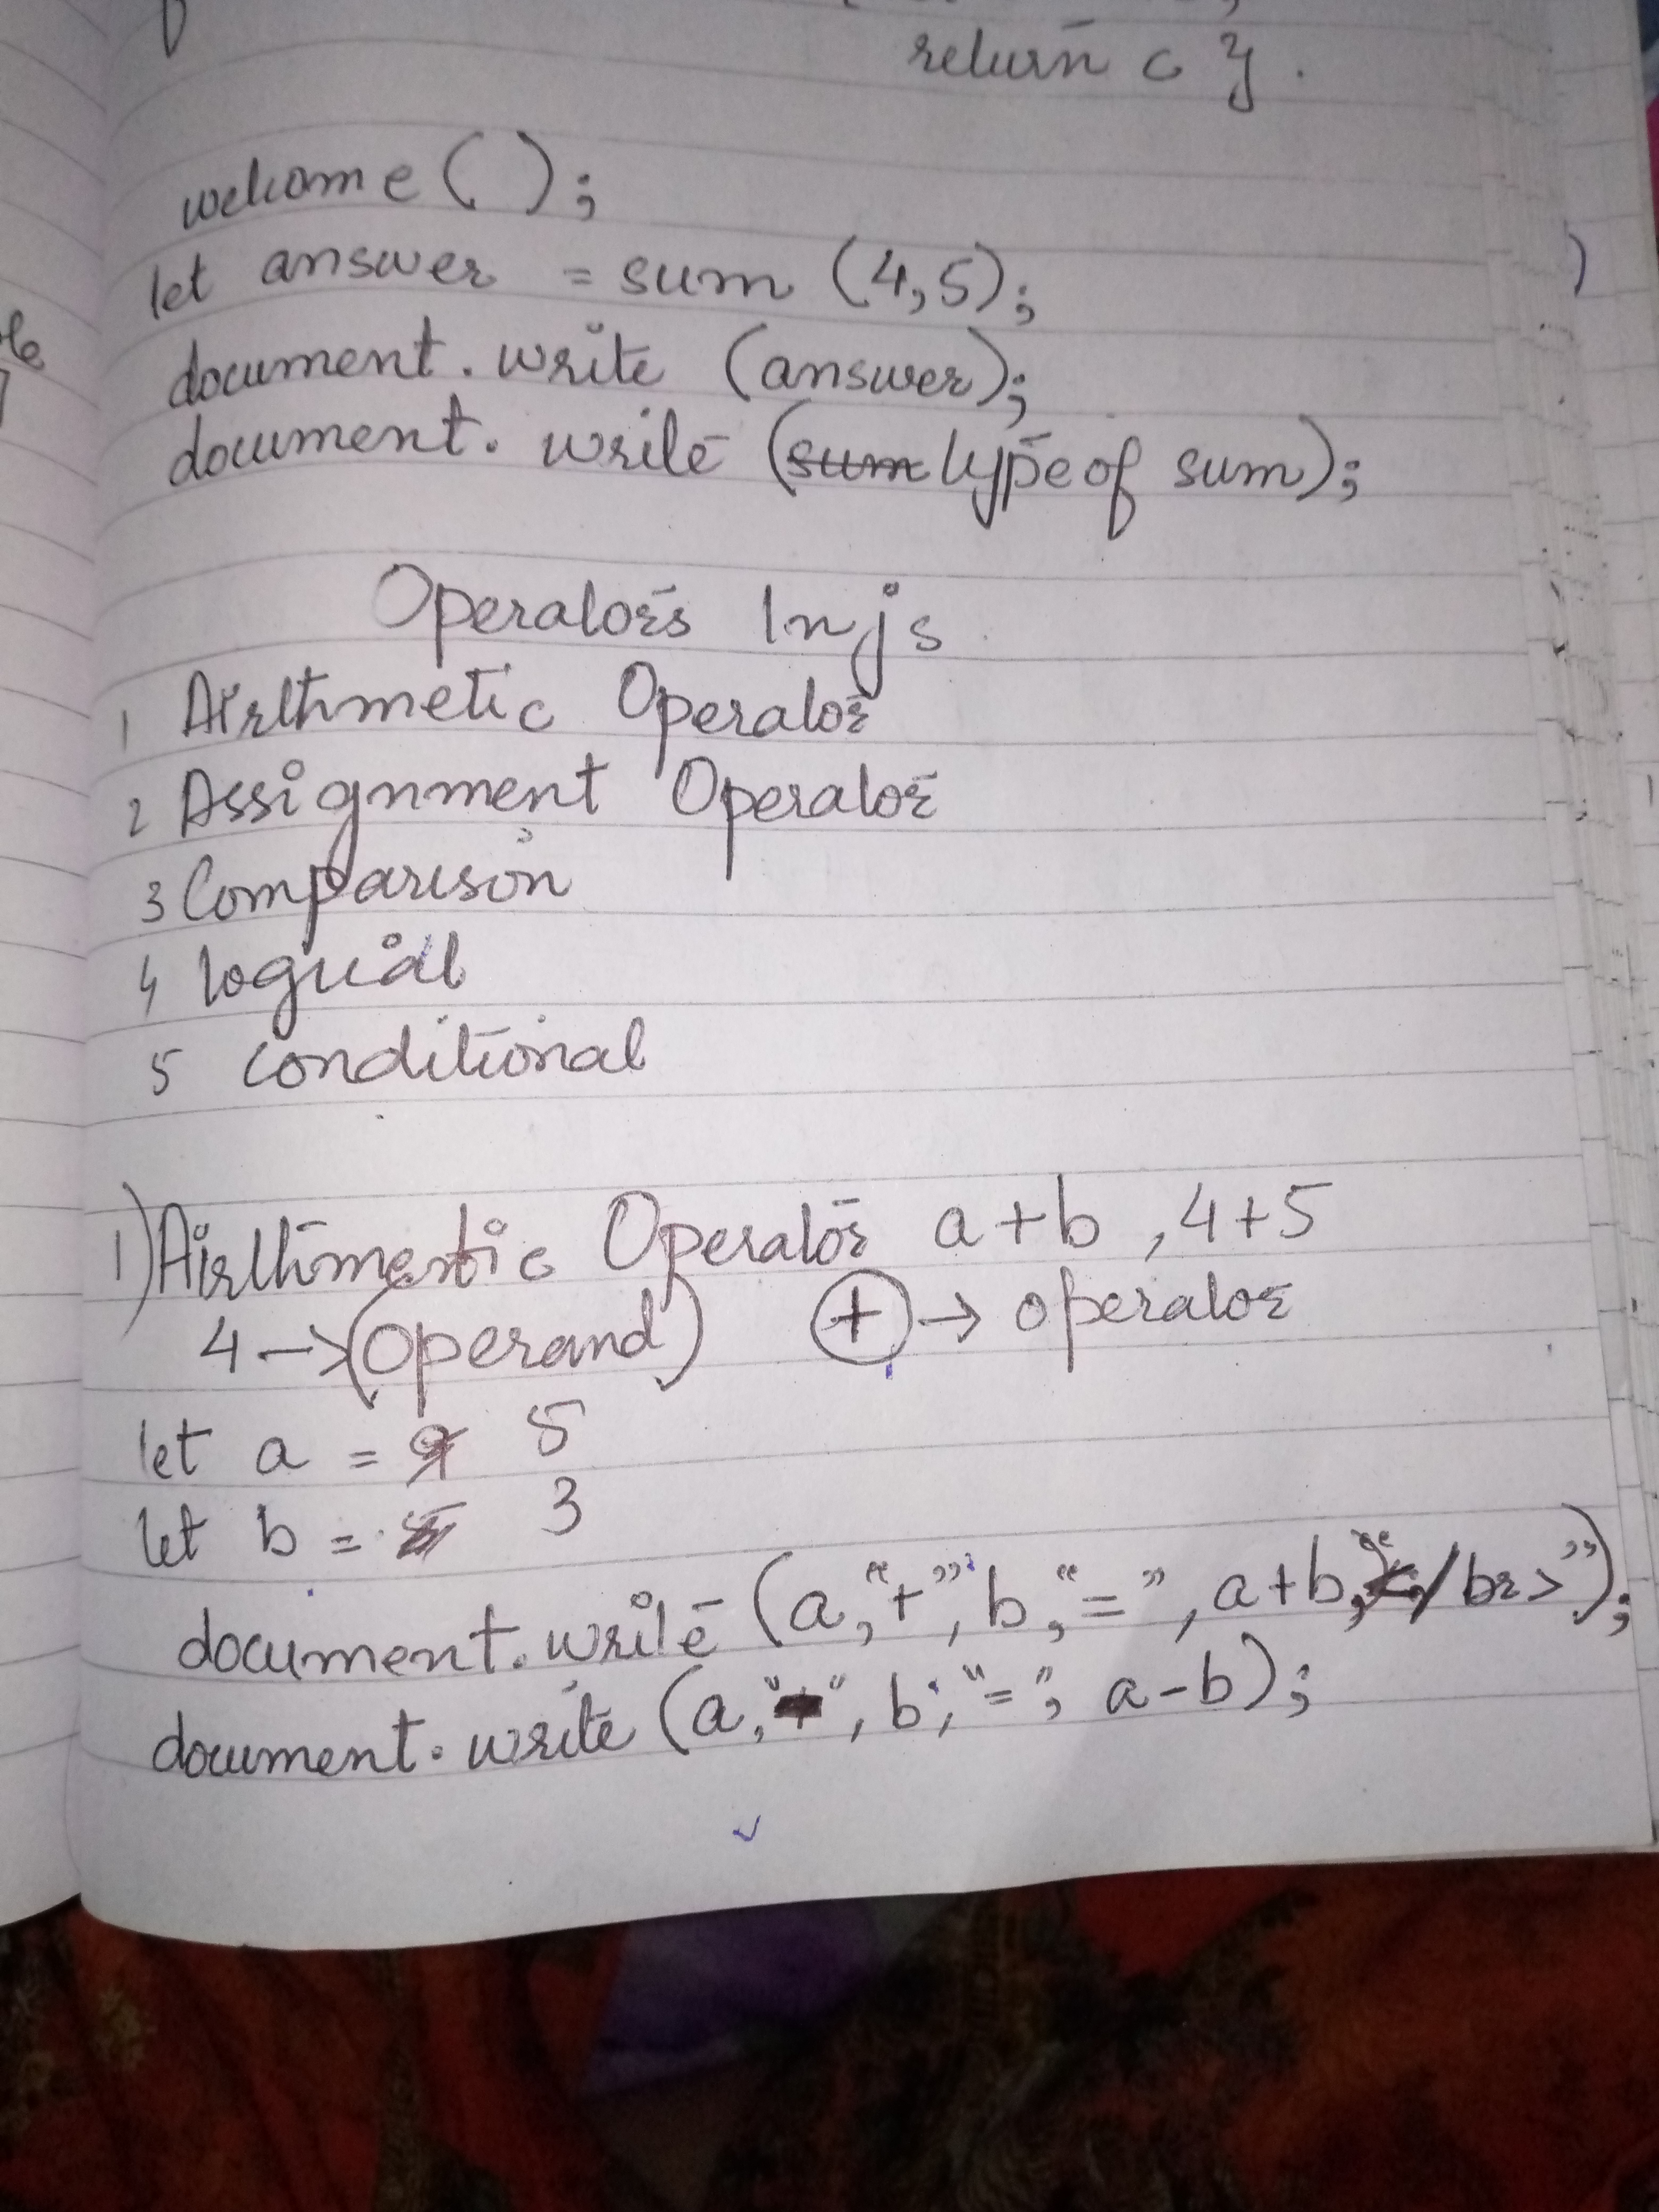 return c }.
welcome ( );
let answer = sum (4,5);
document. write (answer);
document. write (sum typeof sum);
Operators In js
1 Airthmetic Operator
2 Assignment Operator
3 Comparison
4 logical
5 conditional
1) Airthmentic Operator a+b , 4+5
4 -> (operand) + -> operator
let a = 9 5
let b = 5 3
document. write (a, "+", b, "=", a+b, "</br>");
document. write (a, "-", b, "=", a-b);